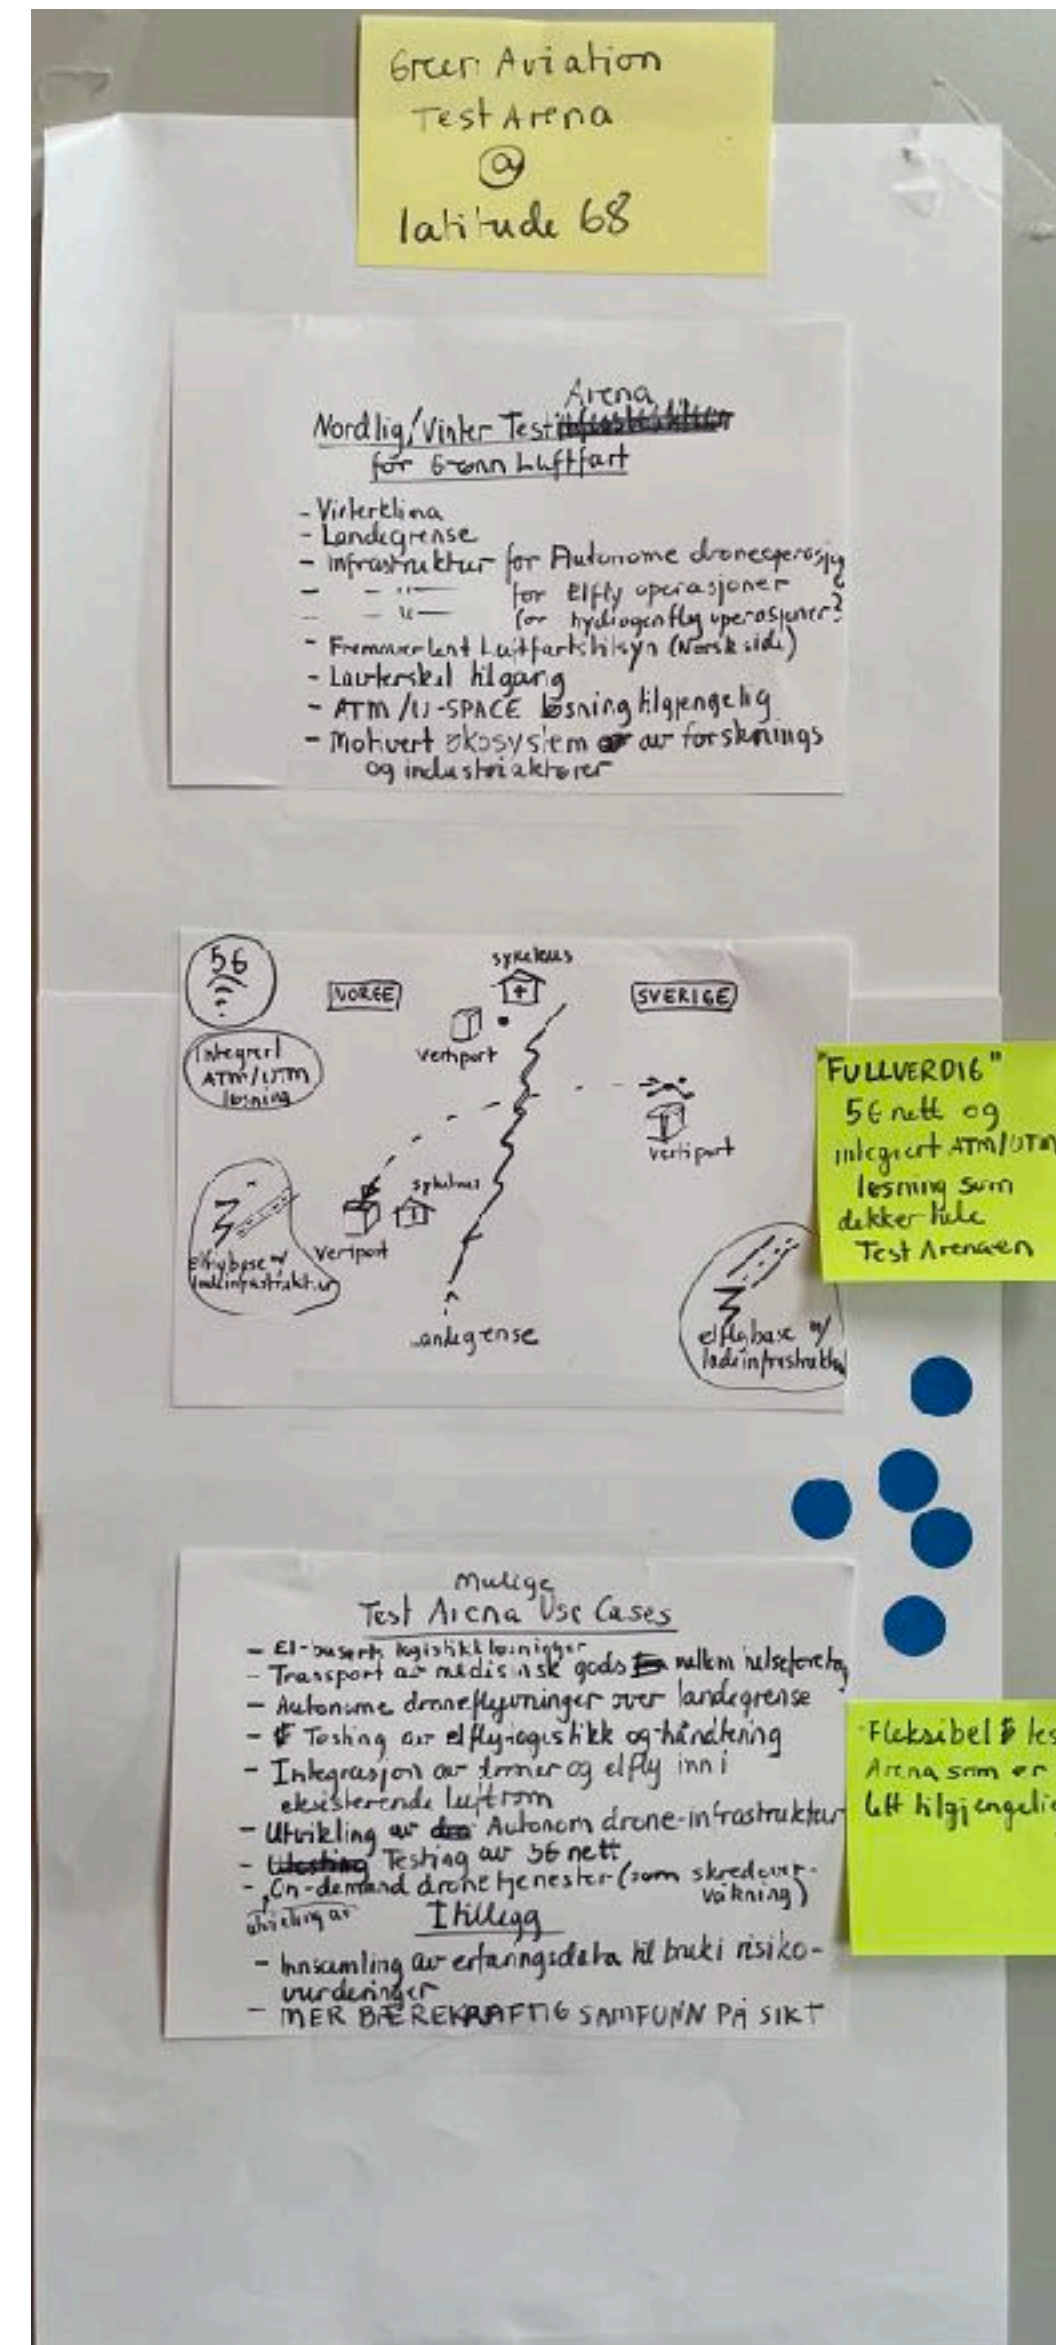 Green Aviation
Test Arena
@
latitude 68
Arena
Nordlig/Vinter Test
for Grønn Luftfart
- Vinterklima
- Landegrense
- Infrastruktur for Autonome droneoperasj
- - " - for Elfly operasjoner
- - " - for hydrogenfly operasjoner?
- Fremoverlent Luftfartstilsyn (Norsk side)
- Lavterskel tilgang
- ATM/U-SPACE løsning tilgjengelig
- Motivert økosystem av forsknings
og industriaktører
5G
NORGE
sykehus
SVERIGE
vertiport
Integrert
ATM/UTM
løsning
vertiport
sykehus
vertiport
elflybase w/
ladeinfrastruktur
landegrense
elflybase w/
ladeinfrastruktur
"FULLVERDIG"
5G nett og
integrert ATM/UTM
løsning som
dekker hele
Test Arenaen
Mulige
Test Arena Use Cases
- El-baserte logistikkløsninger
- Transport av medisinsk gods mellom helseforetag
- Autonome droneflyvninger over landegrense
- Testing av elfly-logistikk og-håndtering
- Integrasjon av droner og elfly inn i
eksisterende luftrom
- Utvikling av Autonom drone-infrastruktur
- Testing av 5G nett
- On-demand dronetjenester (som skredover-
våkning)
utvikling av
I tillegg
- Innsamling av erfaringsdata til bruk i risiko-
vurderinger
- MER BÆREKRAFTIG SAMFUNN PÅ SIKT
Fleksibel tes
Arena som er
lett tilgjengelig